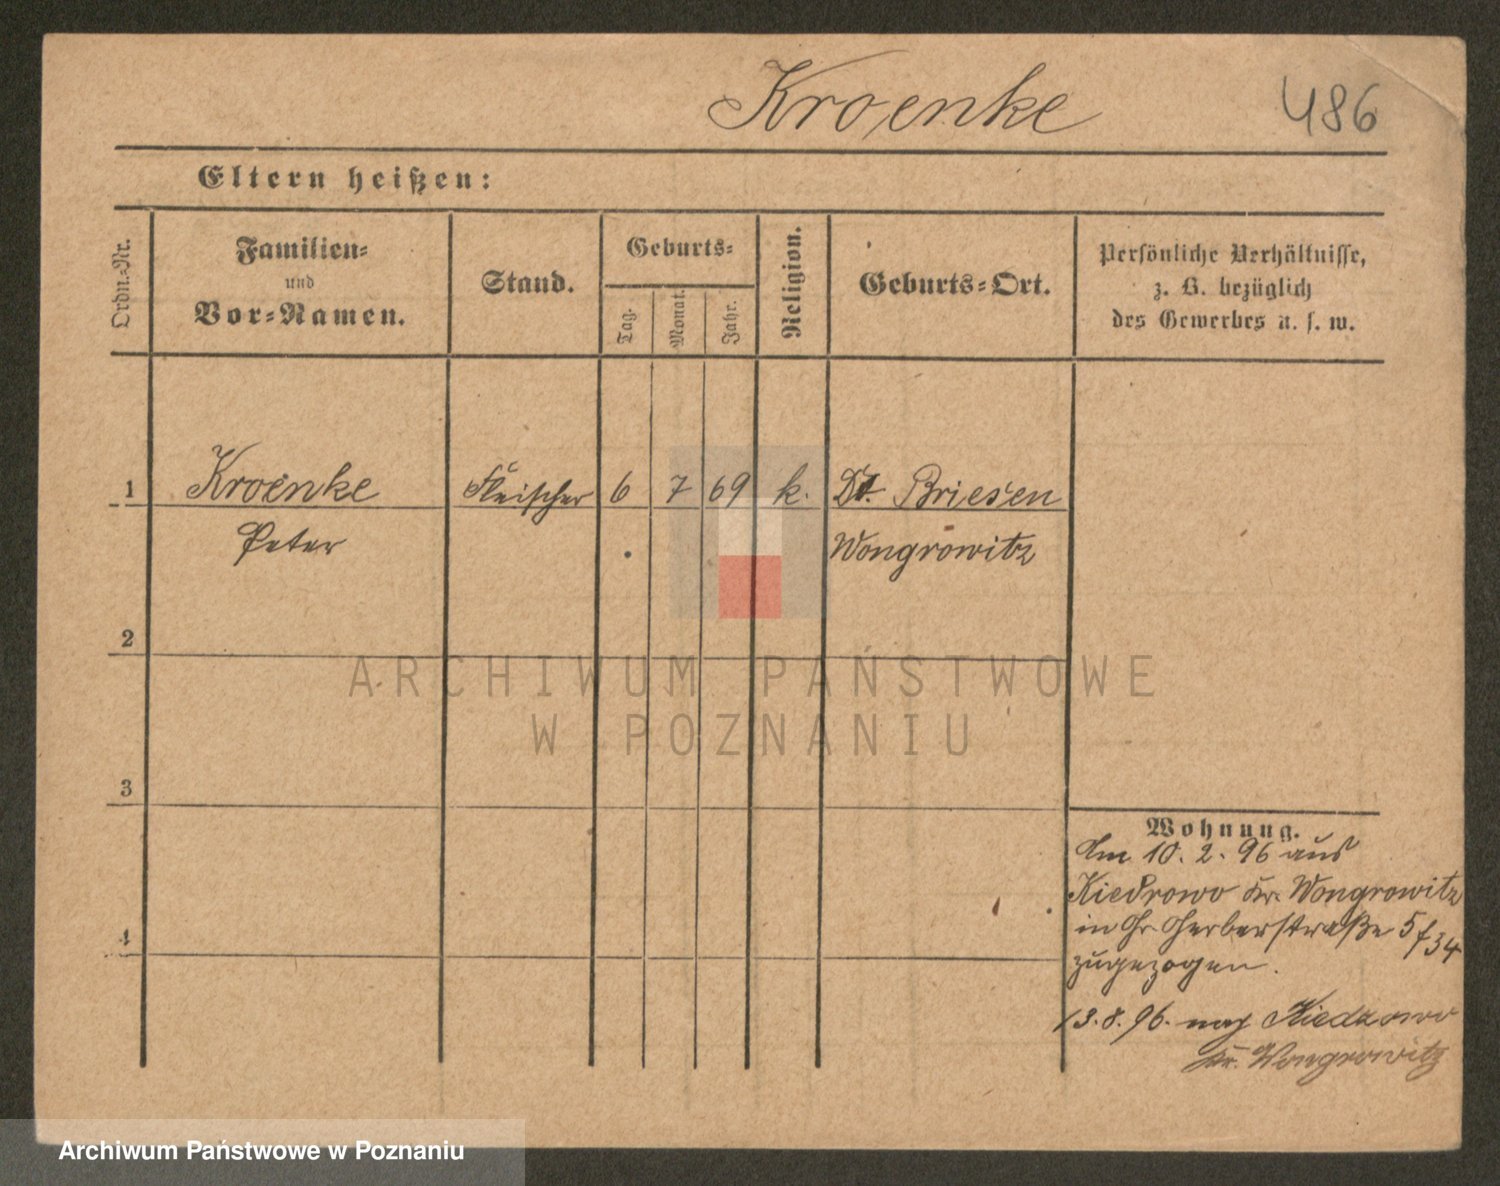 Kroenke 486
Eltern heißen:
Ordn.-Nr.
Familien-
und
Vor-Namen.
Stand.
Geburts-
Tag.
Monat.
Jahr.
Religion.
Geburts-Ort.
Persönliche Verhältnisse,
z. B. bezüglich
des Gewerbes u. s. w.
1 Kroenke Fleischer 6 7 69 k. Dt. Briesen
Peter Wongrowitz
2
3
4
ARCHIWUM PAŃSTWOWE
W POZNANIU
Wohnung.
Am 10. 2. 96 aus
Kiedrowo Kr. Wongrowitz
in Gr. Gerberstraße 5/34
zugezogen.
13. 8. 96. nach Kiedrowo
Kr. Wongrowitz
Archiwum Państwowe w Poznaniu